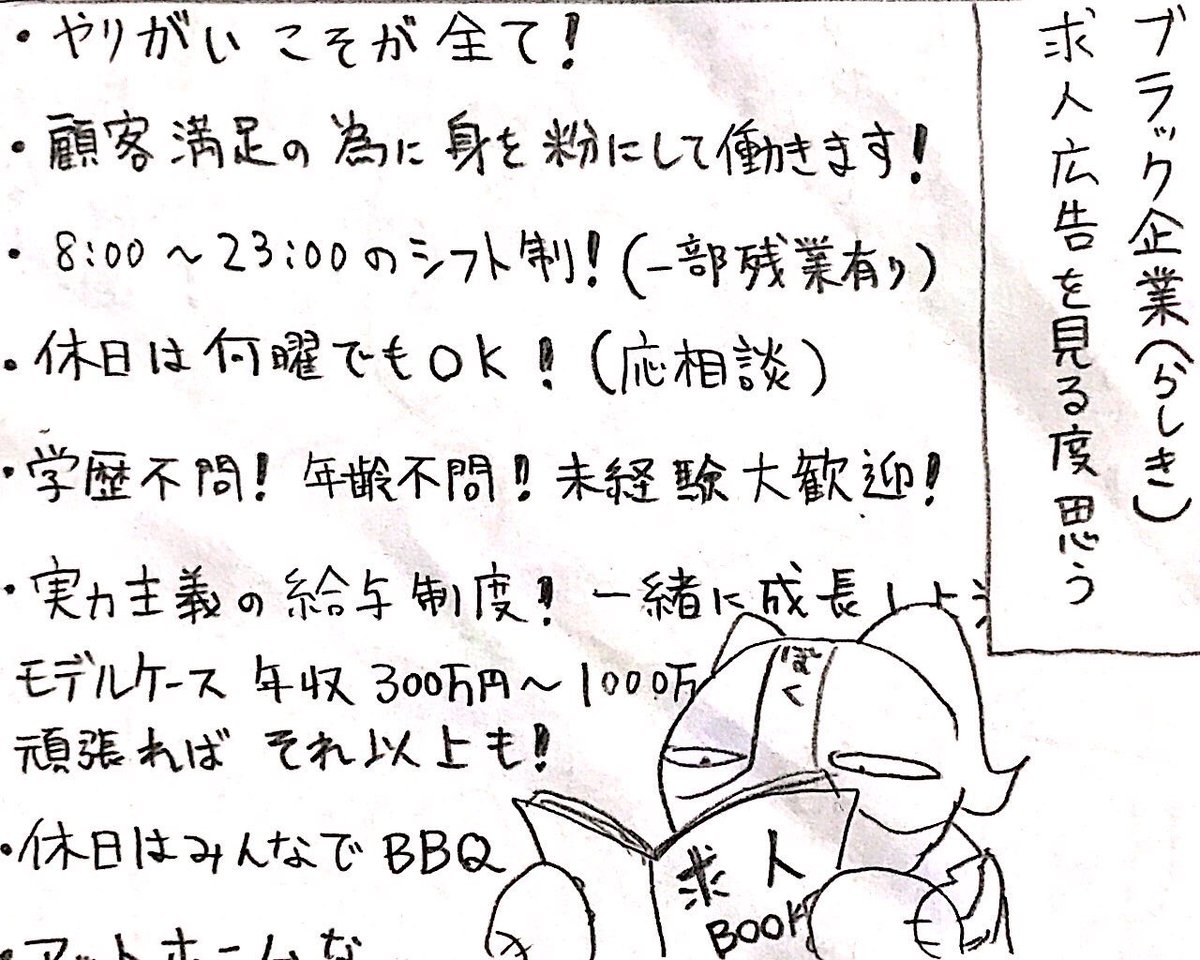 ブラック企業(らしき)
求人広告を見る度思う
・やりがいこそが全て!
・顧客満足の為に身を粉にして働きます!
・8:00～23:00のシフト制!(一部残業有り)
・休日は何曜でもOK!(応相談)
・学歴不問!年齢不問!未経験大歓迎!
・実力主義の給与制度!一緒に成長しよう
モデルケース 年収300万円～1000万
頑張ればそれ以上も!
・休日はみんなでBBQ
・アットホームな
ぼく
求人
BOOK